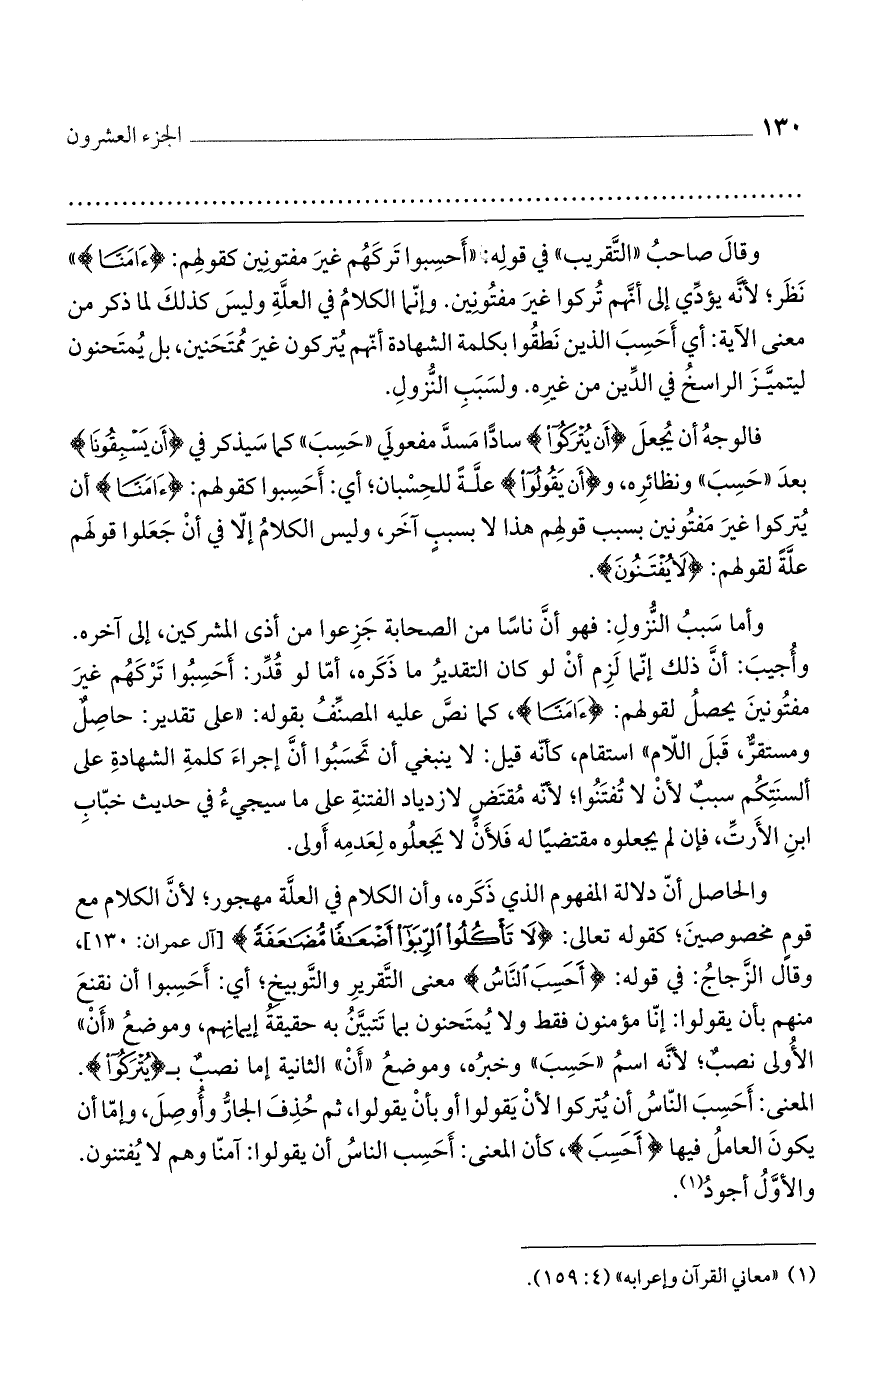 ١٣٠ ــــــــــــــــــــــــــــــ الجزء العشرون
................................................................................
وقالَ صاحبُ «التَّقريب» في قولِه: «أَحسِبوا تَركَهُم غيرَ مفتونِين كقولهِم: ﴿ءَامَنَّا﴾»
نَظَر؛ لأنَّه يؤدِّي إلى أنَّهم تُركوا غيرَ مفتُونِين. وإنَّما الكلامُ في العلَّةِ وليسَ كذلكَ لما ذكر من
معنى الآية: أي أَحَسِبَ الذين نَطقُوا بكلمة الشهادة أنّهم يُتركون غيرَ مُمتَحَنين، بل يُمتَحنون
ليتميَّزَ الراسخُ في الدِّين من غيرِه. ولسَبَبِ النُّزولِ.
فالوجهُ أن يُجعلَ ﴿أَن يُتْرَكُوٓا۟﴾ سادًّا مَسدَّ مفعولَي «حَسِبَ» كما سَيذكر في ﴿أَن يَسْبِقُونَا﴾
بعدَ «حَسِبَ» ونظائرِه، و﴿أَن يَقُولُوٓا۟﴾ علَّـةً للحِسْبان؛ أي: أَحَسِبوا كقولهم: ﴿ءَامَنَّا﴾ أن
يُتركوا غيرَ مَفتُونين بسبب قولهِم هذا لا بسببٍ آخَر، وليس الكلامُ إلّا في أنْ جَعَلوا قولَهم
علَّةً لقولهم: ﴿لَا يُفْتَنُونَ﴾.
وأما سَببُ النُّزولِ: فهو أنَّ ناسًا من الصحابة جَزِعوا من أذى المشركين، إلى آخره.
وأُجيبَ: أنَّ ذلك إنّما لَزِم أنْ لو كان التقديرُ ما ذَكَره، أمّا لو قُدِّر: أَحَسِبُوا تَرْكَهُم غيرَ
مفتُونينَ يحصلُ لقولهم: ﴿ءَامَنَّا﴾، كما نصَّ عليه المصنِّفُ بقوله: «على تقدير: حاصِلٌ
ومستقرٌّ، قَبلَ اللّام» استقام، كأنّه قيل: لا ينبغي أن تَحسَبُوا أنَّ إجراءَ كلمةِ الشهادةِ على
ألسنَتِكُم سببٌ لأنْ لا تُفتَنُوا؛ لأنّه مُقتَضٍ لازدياد الفتنةِ على ما سيجيءُ في حديث خبّابِ
ابنِ الأَرتِّ، فإن لم يجعلوه مقتضيًا له فَلأَنْ لا يَجعلُوه لِعَدمِه أولى.
والحاصل أنّ دلالة المفهوم الذي ذَكَره، وأن الكلام في العلَّة مهجور؛ لأنَّ الكلام مع
قومٍ مخصوصينَ؛ كقوله تعالى: ﴿لَا تَأْكُلُوا۟ ٱلرِّبَوٰٓا۟ أَضْعَـٰفًا مُّضَـٰعَفَةً﴾ [آل عمران: ١٣٠]،
وقال الزَّجاجُ: في قوله: ﴿أَحَسِبَ ٱلنَّاسُ﴾ معنى التَّقريرِ والتَّوبيخِ؛ أي: أَحَسِبوا أن نقنعَ
منهم بأن يقولوا: إنّا مؤمنون فقط ولا يُمتَحنون بما تَتبيَّنُ به حقيقةُ إيمانِهم، وموضعُ «أَنْ»
الأُولى نصبٌ؛ لأنَّه اسمُ «حَسِبَ» وخبرُه، وموضعُ «أَنْ» الثانية إما نصبٌ بـ﴿يُتْرَكُوٓا۟﴾.
المعنى: أَحَسِبَ النّاسُ أن يُتركوا لأنْ يَقولوا أو بأنْ يقولوا، ثم حُذِفَ الجارُّ وأُوصِلَ، وإمّا أن
يكونَ العاملُ فيها ﴿أَحَسِبَ﴾، كأن المعنى: أَحَسِب الناسُ أن يقولوا: آمنّا وهم لا يُفتنون.
والأوَّلُ أجودُ(١).
(١) «معاني القرآن وإعرابه» (٤: ١٥٩).